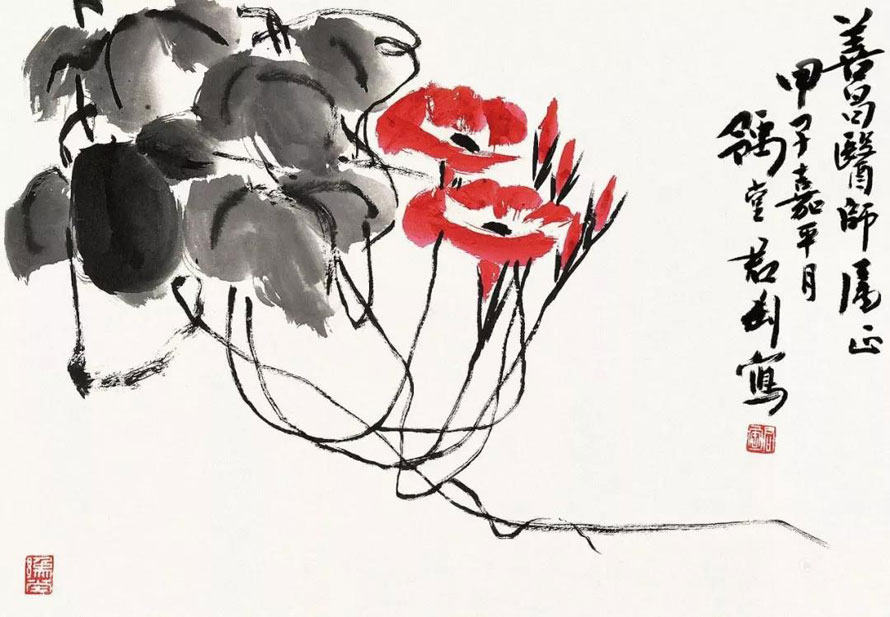 善昌醫師屬正
甲子嘉平月
鷂堂君山寫